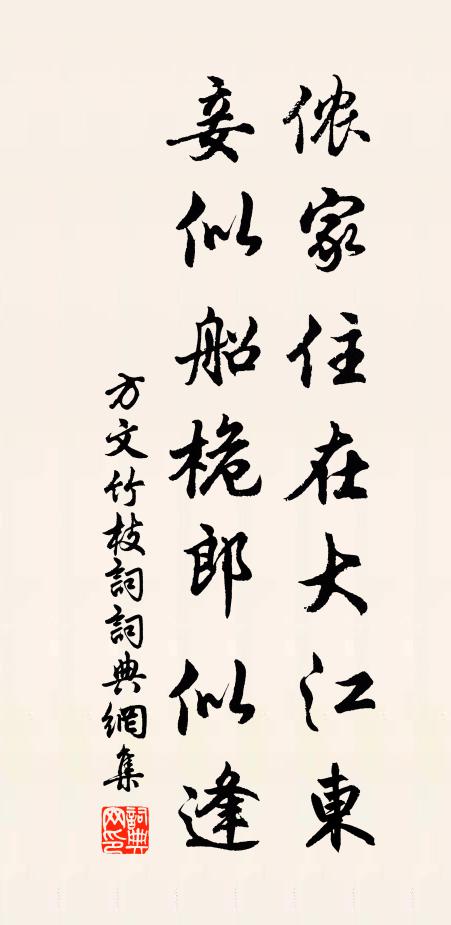 侬家住在大江東
妾似船桅郎似逢
方文竹枝詞詞典網集
詞典網印